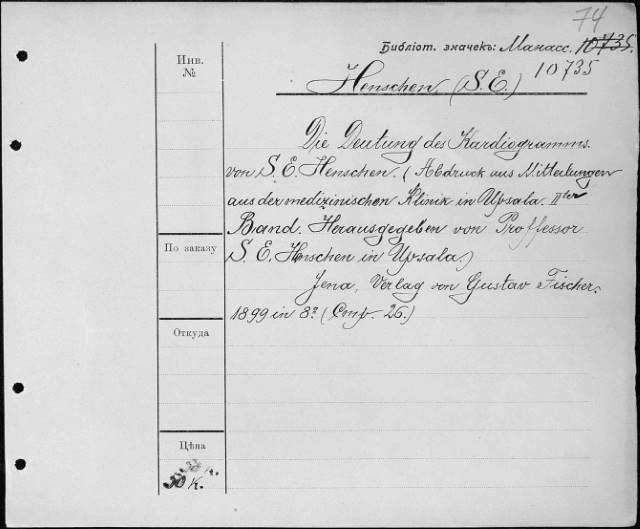 74
Библіот. значекъ: Манасс. 10735.
Инв.
№
10735
Henschen. (S. E.)
Die Deutung des Kardiogramms.
von S. E. Henschen. (Abdruck aus Mitteilungen
aus der medizinischen Klinik in Upsala. IIter
Band. Herausgegeben von Proffessor
По заказу
S. E. Henschen in Upsala.)
Jena, Verlag von Gustav Fischer.
1899 in 8º (Стр. 26.)
Откуда
Цѣна
30 к.